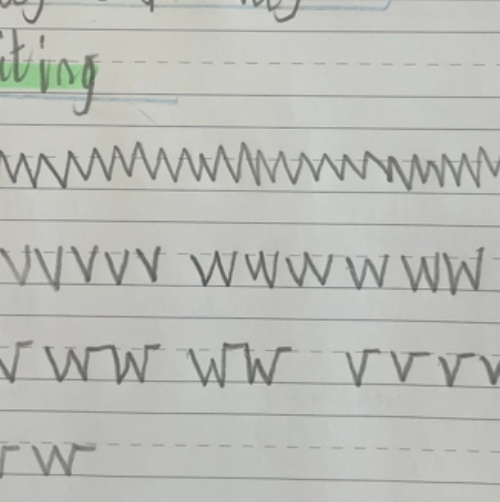 iting
VVVVV WWWWWW
V WW WW VVVV
r W